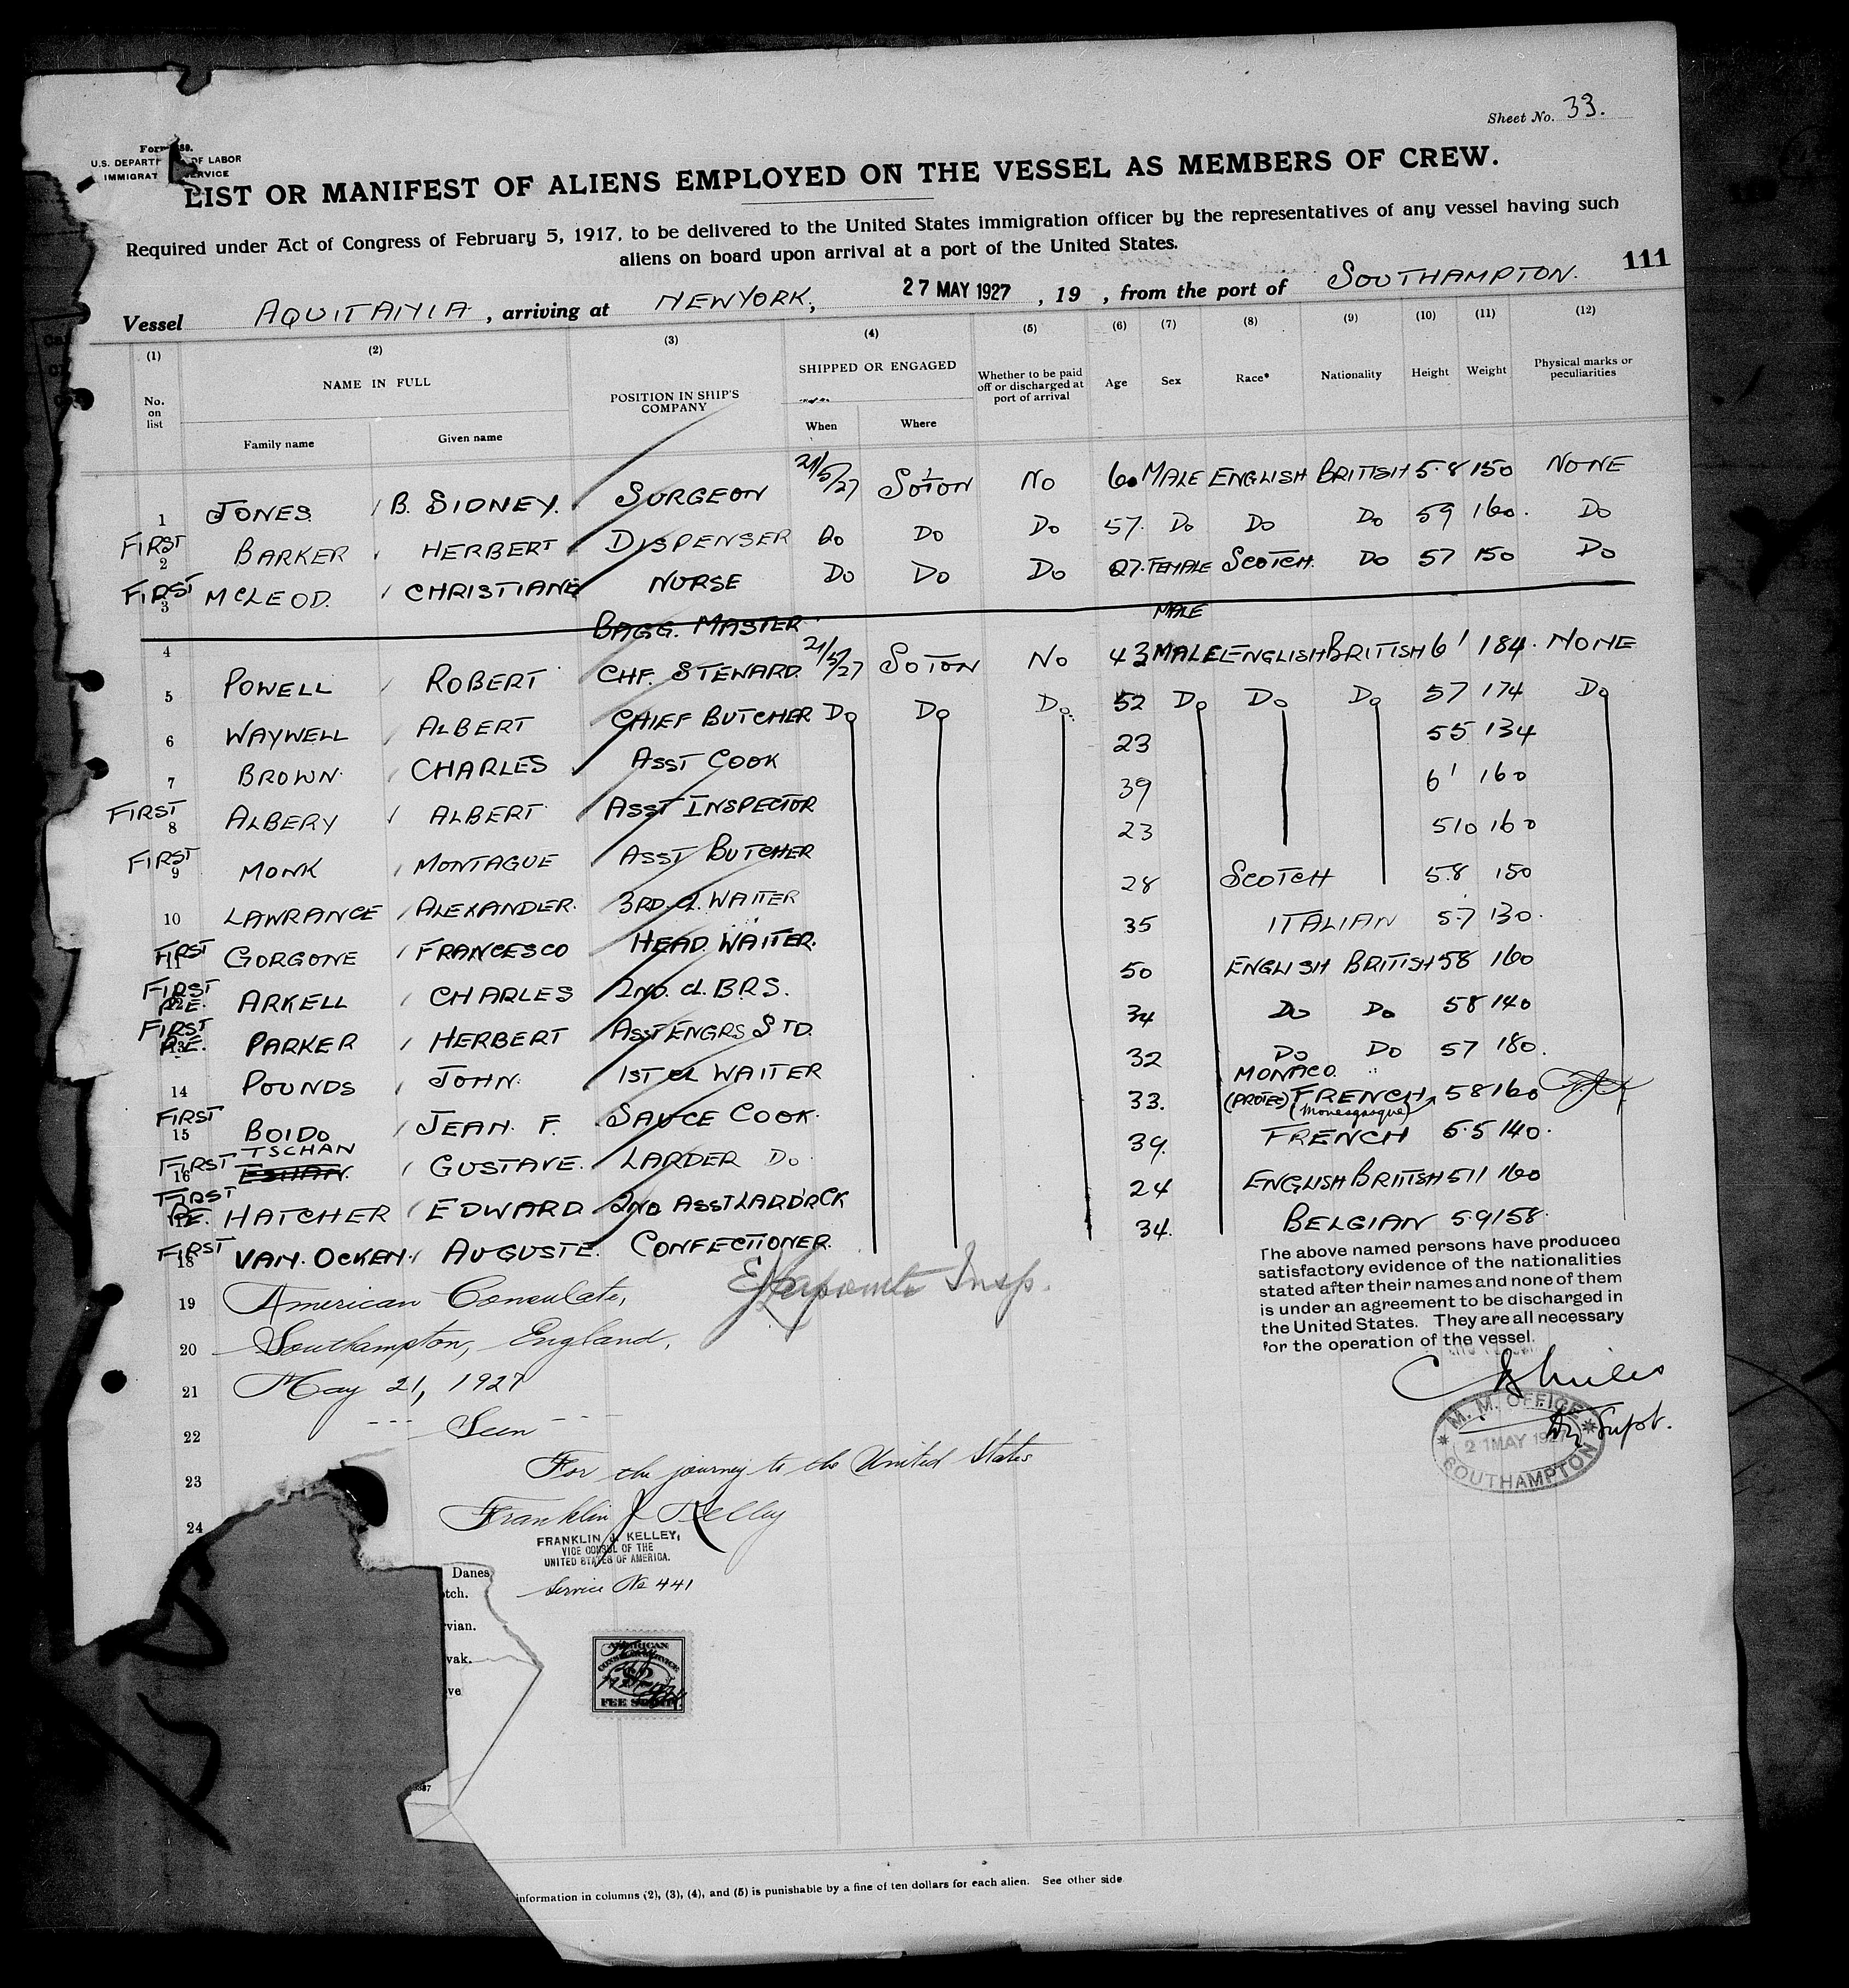 Sheet No. 33.
U.S. DEPARTM OF LABOR
IMMIGRAT SERVICE
LIST OR MANIFEST OF ALIENS EMPLOYED ON THE VESSEL AS MEMBERS OF CREW.
Required under Act of Congress of February 5, 1917, to be delivered to the United States immigration officer by the representatives of any vessel having such
aliens on board upon arrival at a port of the United States.
111
Vessel AQUITANIA, arriving at NEWYORK, 27 MAY 1927, 19 , from the port of SOUTHAMPTON.
(1) (2) (3) (4) (5) (6) (7) (8) (9) (10) (11) (12)
No. on list NAME IN FULL POSITION IN SHIP'S COMPANY SHIPPED OR ENGAGED Whether to be paid off or discharged at port of arrival Age Sex Race* Nationality Height Weight Physical marks or peculiarities
Family name Given name When Where
1 JONES B. SIDNEY. SURGEON 21/5/27 SO'TON NO 60 MALE ENGLISH BRITISH 5.8 150 NONE
FIRST 2 BARKER HERBERT DISPENSER DO DO DO 57. DO DO DO 59 160. DO
FIRST 3 MCLEOD. CHRISTIANE NURSE DO DO DO 27. FEMALE SCOTCH. DO 57 150 DO
4 BAGG. MASTER MALE
5 POWELL ROBERT CHF. STEWARD. 21/5/27 SOTON NO 43 MALE ENGLISH BRITISH 6' 184. NONE
6 WAYWELL ALBERT CHIEF BUTCHER DO DO DO. 52 DO DO DO 57 174 DO
7 BROWN CHARLES ASST COOK 23 55 134
FIRST 8 ALBERY ALBERT ASST INSPECTOR 39 6' 160
FIRST 9 MONK MONTAGUE ASST BUTCHER 23 510 160
10 LAWRANCE ALEXANDER. 3RD. CL. WAITER 28 SCOTCH 5.8 150
FIRST 11 GORGONE FRANCESCO HEAD. WAITER. 35 ITALIAN 5.7 130.
FIRST RE. ARKELL CHARLES 2ND. CL. B.R.S. 50 ENGLISH BRITISH 58 160
FIRST RE. PARKER HERBERT ASST ENGRS STD. 34 DO DO 58 140
14 POUNDS JOHN. 1ST CL WAITER 32 DO DO 57 180.
FIRST 15 BOIDO JEAN. F. SAUCE COOK. 33. MONACO. (PROTEC) FRENCH (Monesgasque) 58 160
FIRST 16 TSCHAN GUSTAVE. LARDER DO 39. FRENCH 5.5 140.
FIRST RE. HATCHER EDWARD 2ND ASST LARD'R CK 24 ENGLISH BRITISH 511 160
FIRST 18 VAN. OCKEN. AUGUSTE. CONFECTIONER. 34. BELGIAN 5.9 158.
The above named persons have produced
satisfactory evidence of the nationalities
stated after their names and none of them
is under an agreement to be discharged in
the United States. They are all necessary
for the operation of the vessel.
Insp.
19 American Consulate,
20 Southampton, England,
21 May 21, 1927
22 --- Seen ---
23 For the journey to the United States
24 Franklin J Kelley
Supt.
M. M. OFFICE
21 MAY 1927
SOUTHAMPTON
FRANKLIN J. KELLEY,
VICE CONSUL OF THE
UNITED STATES OF AMERICA.
Service No 441
Danes
tch.
vian.
vak.
ve
AMERICAN
CONSULAR SERVICE
$2
FEE STAMP
information in columns (2), (3), (4), and (5) is punishable by a fine of ten dollars for each alien. See other side